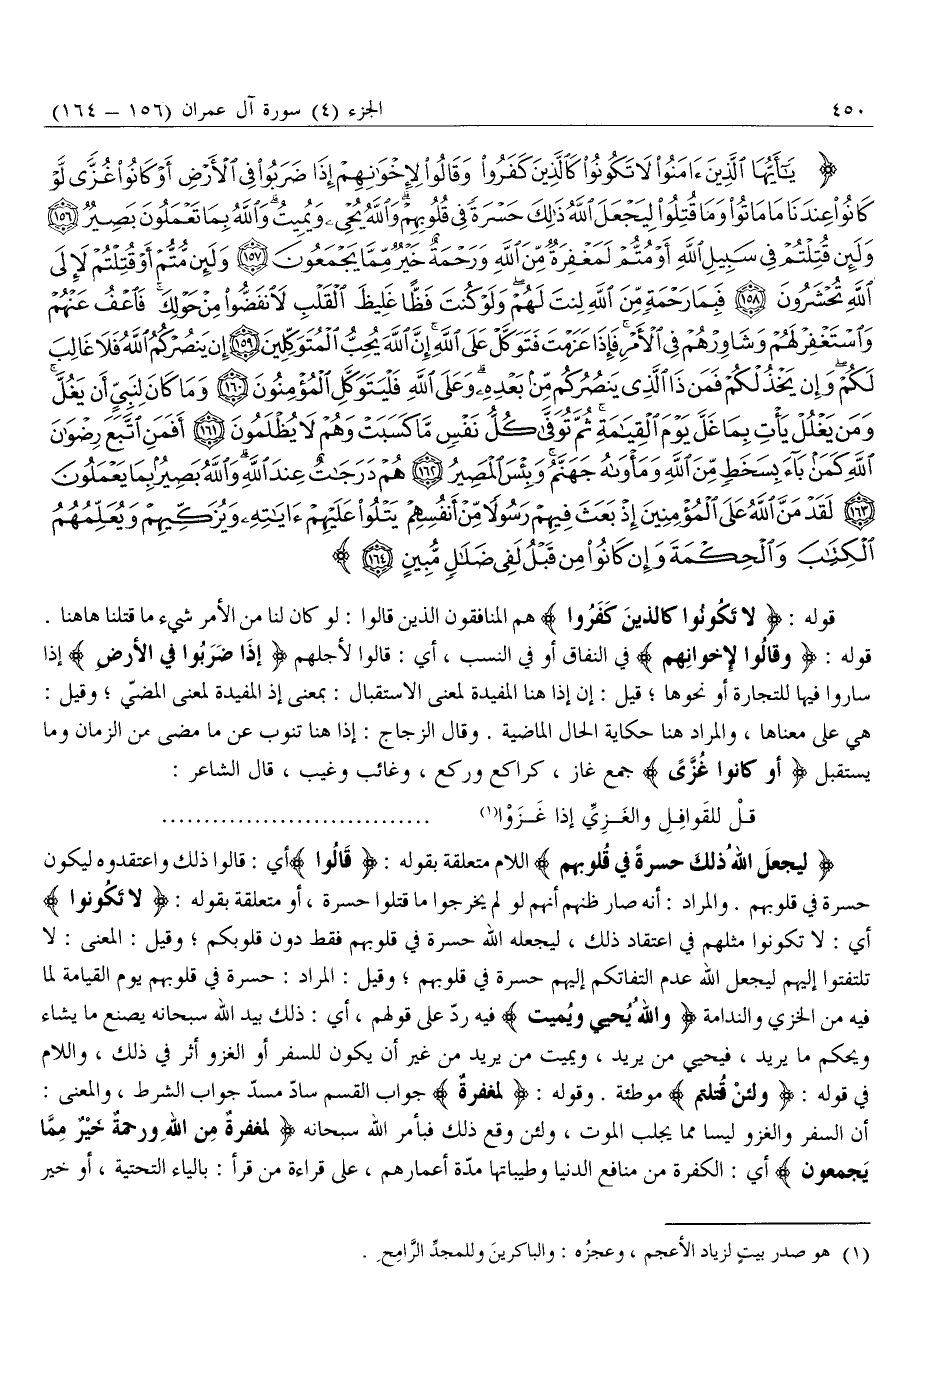 ٤٥٠ الجزء (٤) سورة آل عمران (١٥٦ – ١٦٤)
﴿ يَٰٓأَيُّهَا ٱلَّذِينَ ءَامَنُوا۟ لَا تَكُونُوا۟ كَٱلَّذِينَ كَفَرُوا۟ وَقَالُوا۟ لِإِخْوَٰنِهِمْ إِذَا ضَرَبُوا۟ فِى ٱلْأَرْضِ أَوْ كَانُوا۟ غُزًّى لَّوْ
كَانُوا۟ عِندَنَا مَا مَاتُوا۟ وَمَا قُتِلُوا۟ لِيَجْعَلَ ٱللَّهُ ذَٰلِكَ حَسْرَةً فِى قُلُوبِهِمْ وَٱللَّهُ يُحْىِۦ وَيُمِيتُ وَٱللَّهُ بِمَا تَعْمَلُونَ بَصِيرٌ ١٥٦
وَلَئِن قُتِلْتُمْ فِى سَبِيلِ ٱللَّهِ أَوْ مُتُّمْ لَمَغْفِرَةٌ مِّنَ ٱللَّهِ وَرَحْمَةٌ خَيْرٌ مِّمَّا يَجْمَعُونَ ١٥٧ وَلَئِن مُّتُّمْ أَوْ قُتِلْتُمْ لَإِلَى
ٱللَّهِ تُحْشَرُونَ ١٥٨ فَبِمَا رَحْمَةٍ مِّنَ ٱللَّهِ لِنتَ لَهُمْ وَلَوْ كُنتَ فَظًّا غَلِيظَ ٱلْقَلْبِ لَٱنفَضُّوا۟ مِنْ حَوْلِكَ فَٱعْفُ عَنْهُمْ
وَٱسْتَغْفِرْ لَهُمْ وَشَاوِرْهُمْ فِى ٱلْأَمْرِ فَإِذَا عَزَمْتَ فَتَوَكَّلْ عَلَى ٱللَّهِ إِنَّ ٱللَّهَ يُحِبُّ ٱلْمُتَوَكِّلِينَ ١٥٩ إِن يَنصُرْكُمُ ٱللَّهُ فَلَا غَالِبَ
لَكُمْ وَإِن يَخْذُلْكُمْ فَمَن ذَا ٱلَّذِى يَنصُرُكُم مِّنۢ بَعْدِهِۦ وَعَلَى ٱللَّهِ فَلْيَتَوَكَّلِ ٱلْمُؤْمِنُونَ ١٦٠ وَمَا كَانَ لِنَبِىٍّ أَن يَغُلَّ
وَمَن يَغْلُلْ يَأْتِ بِمَا غَلَّ يَوْمَ ٱلْقِيَٰمَةِ ثُمَّ تُوَفَّىٰ كُلُّ نَفْسٍ مَّا كَسَبَتْ وَهُمْ لَا يُظْلَمُونَ ١٦١ أَفَمَنِ ٱتَّبَعَ رِضْوَٰنَ
ٱللَّهِ كَمَنۢ بَآءَ بِسَخَطٍ مِّنَ ٱللَّهِ وَمَأْوَىٰهُ جَهَنَّمُ وَبِئْسَ ٱلْمَصِيرُ ١٦٢ هُمْ دَرَجَٰتٌ عِندَ ٱللَّهِ وَٱللَّهُ بَصِيرٌۢ بِمَا يَعْمَلُونَ
١٦٣ لَقَدْ مَنَّ ٱللَّهُ عَلَى ٱلْمُؤْمِنِينَ إِذْ بَعَثَ فِيهِمْ رَسُولًا مِّنْ أَنفُسِهِمْ يَتْلُوا۟ عَلَيْهِمْ ءَايَٰتِهِۦ وَيُزَكِّيهِمْ وَيُعَلِّمُهُمُ
ٱلْكِتَٰبَ وَٱلْحِكْمَةَ وَإِن كَانُوا۟ مِن قَبْلُ لَفِى ضَلَٰلٍ مُّبِينٍ ١٦٤ ﴾
قوله : ﴿ لا تَكُونُوا كالذينَ كَفَرُوا ﴾ هم المنافقون الذين قالوا : لو كان لنا من الأمر شيء ما قتلنا هاهنا .
قوله : ﴿ وقالُوا لإخوانِهم ﴾ في النفاق أو في النسب ، أي : قالوا لأجلهم ﴿ إذَا ضرَبُوا في الأرضِ ﴾ إذا
ساروا فيها للتجارة أو نحوها ؛ قيل : إن إذا هنا المفيدة لمعنى الاستقبال : بمعنى إذ المفيدة لمعنى المضيّ ؛ وقيل :
هي على معناها ، والمراد هنا حكاية الحال الماضية . وقال الزجاج : إذا هنا تنوب عن ما مضى من الزمان وما
يستقبل ﴿ أو كانوا غُزًّى ﴾ جمع غاز ، كراكع وركع ، وغائب وغيب ، قال الشاعر :
قـلْ للقَوافِلِ والغَـزِيِّ إذا غَـزَوْا(١) ................................
﴿ ليجعلَ اللهُ ذلكَ حسرةً في قُلوبهم ﴾ اللام متعلقة بقوله : ﴿ قَالُوا ﴾ أي : قالوا ذلك واعتقدوه ليكون
حسرة في قلوبهم . والمراد : أنه صار ظنهم أنهم لو لم يخرجوا ما قتلوا حسرة ، أو متعلقة بقوله : ﴿ لا تَكونوا ﴾
أي : لا تكونوا مثلهم في اعتقاد ذلك ، ليجعله الله حسرة في قلوبهم فقط دون قلوبكم ؛ وقيل : المعنى : لا
تلتفتوا إليهم ليجعل الله عدم التفاتكم إليهم حسرة في قلوبهم ؛ وقيل : المراد : حسرة في قلوبهم يوم القيامة لما
فيه من الخزي والندامة ﴿ واللهُ يُحيي ويُميت ﴾ فيه ردّ على قولهم ، أي : ذلك بيد الله سبحانه يصنع ما يشاء
ويحكم ما يريد ، فيحيي من يريد ، ويميت من يريد من غير أن يكون للسفر أو الغزو أثر في ذلك ، واللام
في قوله : ﴿ ولئنْ قُتلتم ﴾ موطئة . وقوله : ﴿ لمغفرةٌ ﴾ جواب القسم سادّ مسدّ جواب الشرط ، والمعنى :
أن السفر والغزو ليسا مما يجلب الموت ، ولئن وقع ذلك فبأمر الله سبحانه ﴿ لمغفرةٌ مِن اللهِ ورحمةٌ خَيْرٌ مِمَّا
يَجمعون ﴾ أي : الكفرة من منافع الدنيا وطيباتها مدّة أعمارهم ، على قراءة من قرأ : بالياء التحتية ، أو خير
(١) هو صدر بيتٍ لزياد الأعجم ، وعجزُه : والباكرينَ وللمجدِّ الرَّامِحِ .